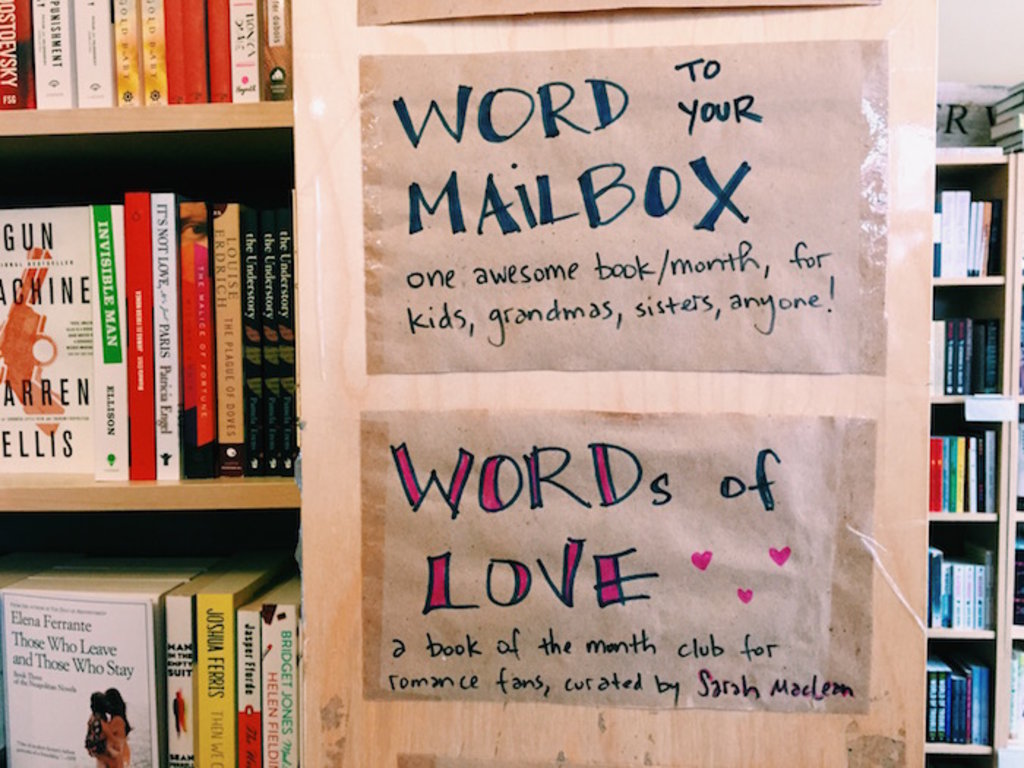 DOSTOEVSKY
FSG
PUNISHMENT
GOLD BABY
GOLD BABY
WORD TO YOUR
MAILBOX
one awesome book/month, for
kids, grandmas, sisters, anyone!
WORDs of
LOVE
a book of the month club for
romance fans, curated by Sarah MacLean
GUN
MACHINE
WARREN
ELLIS
INVISIBLE MAN
ELLISON
IT'S NOT LOVE, IT'S JUST PARIS Patricia Engel
THE MALICE OF FORTUNE
LOUISE ERDRICH THE PLAGUE OF DOVES
the Understory
the Understory
the Understory
Elena Ferrante
Those Who Leave
and Those Who Stay
Book Three
of the Neapolitan Novels
MAN
IN THE
EMPTY
SUIT
SEAN
JOSHUA FERRIS THEN WE C
Jasper Fforde
BRIDGET JONES
HELEN FIELDING
ER W